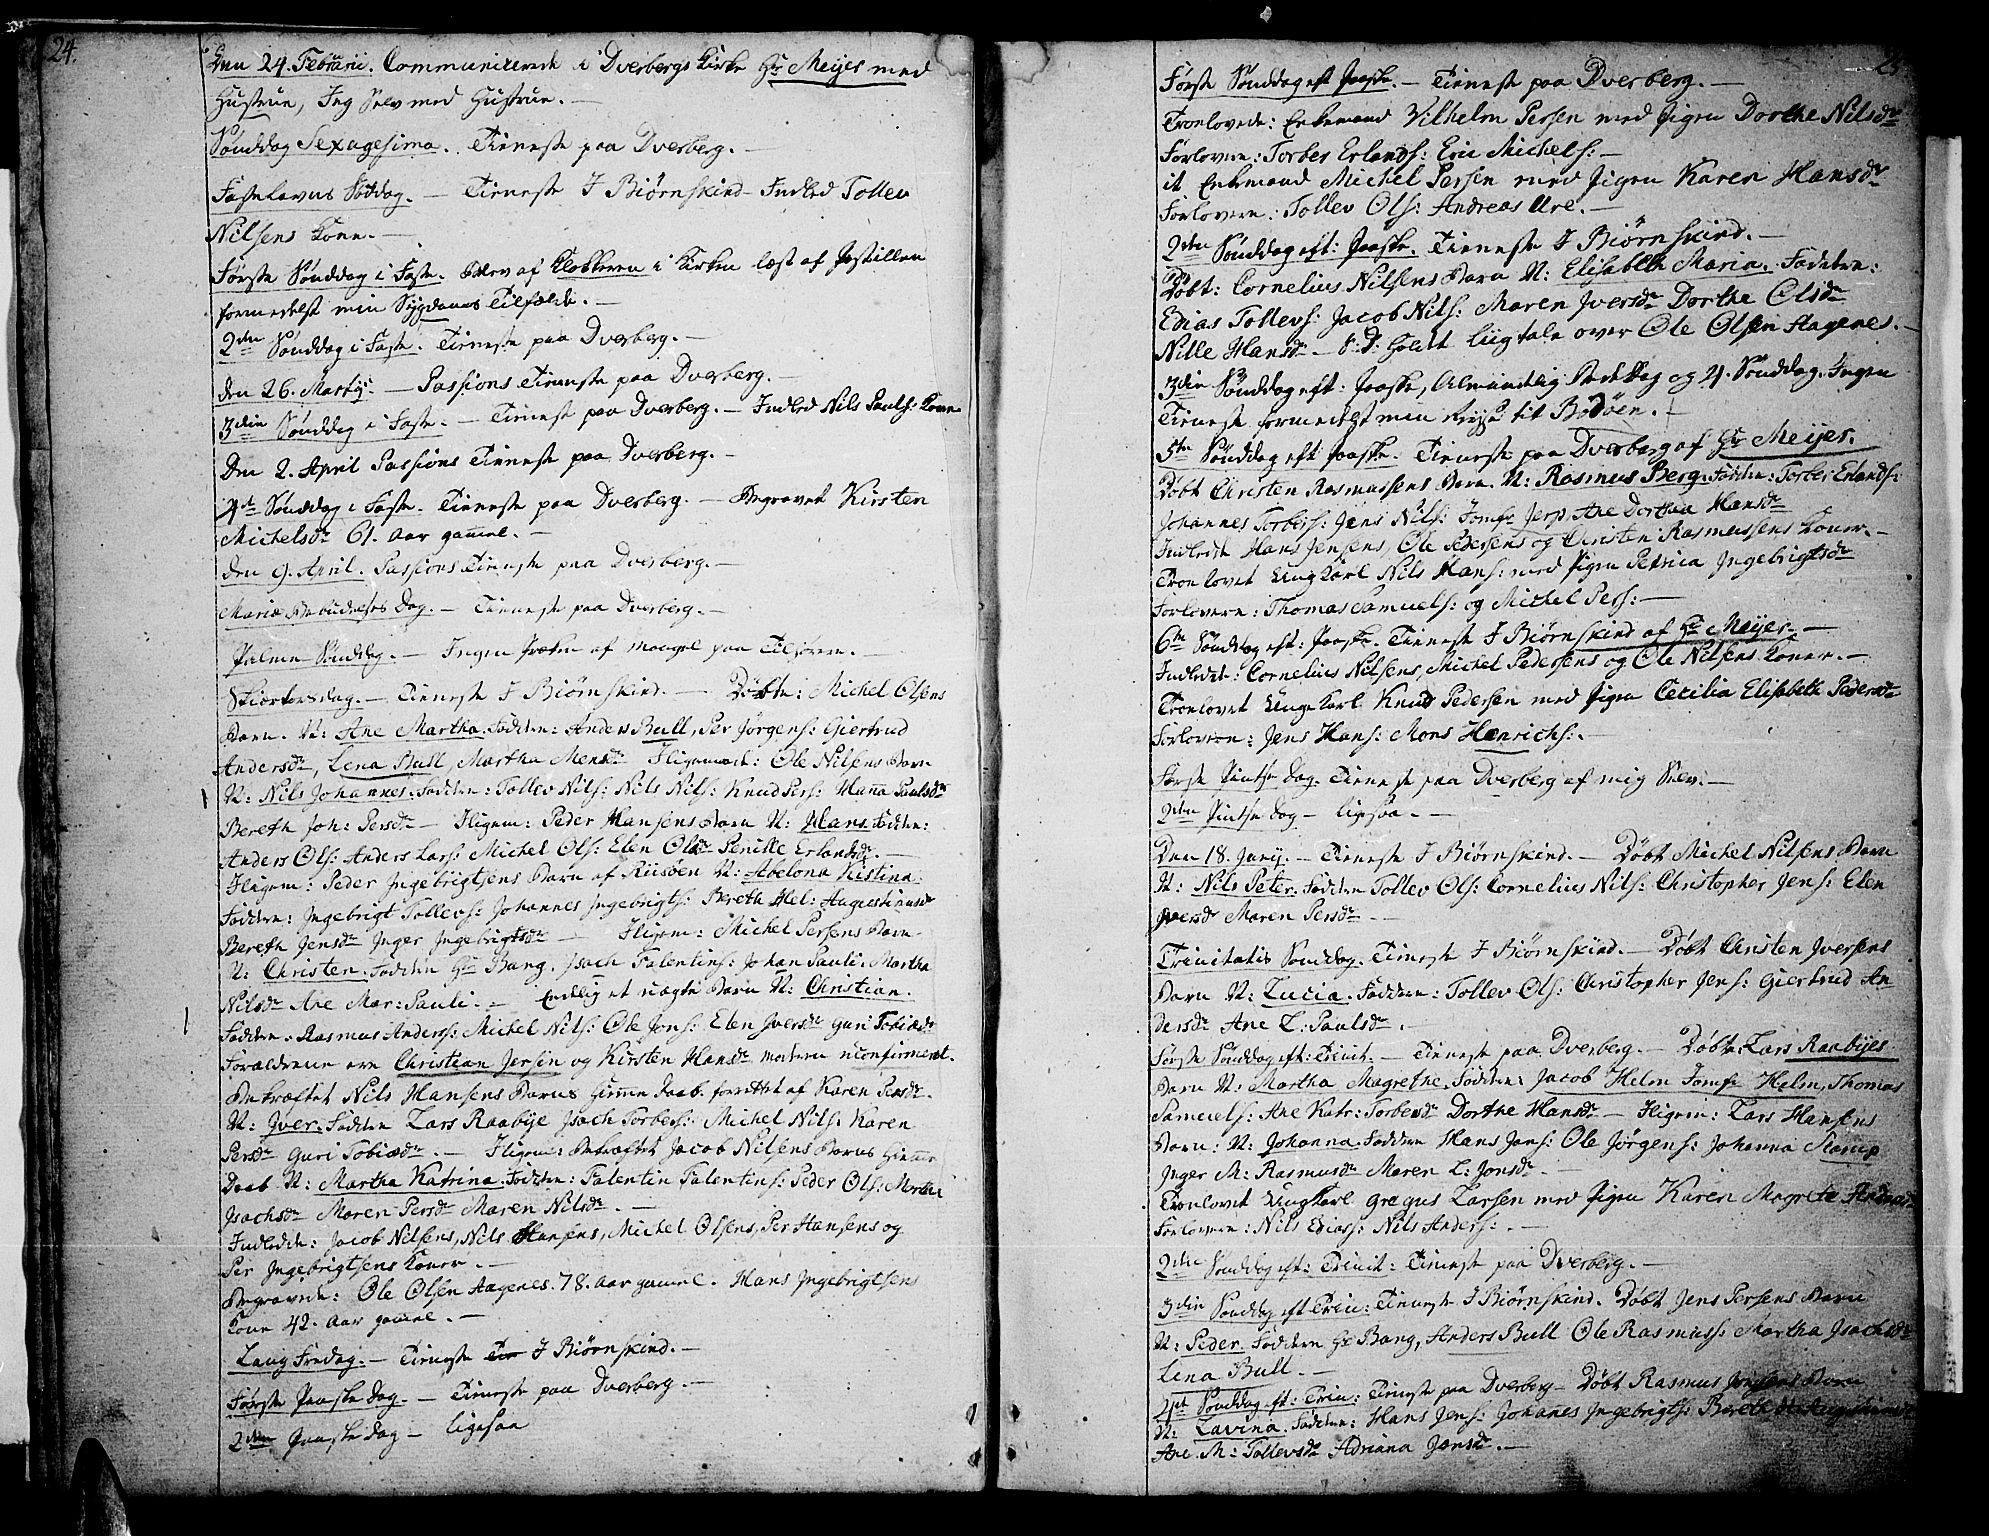 24.
Den 24. Febrarii. Communicerede i Dverbergs Kirke Hr Meijer med
Hustrue, Jeg Selv med Hustrue. —
Sønddag Sexagesima. Tieneste paa Dverberg. —
Fastelavns Sønddag. — Tieneste I Biørnskind Indled Tollev
Nilsens Kone. —
Første Sønddag i Faste. Blev af Klokkeren i Kirken læst af Postillen
formedelst min Sygdoms Tilfælde. —
2den Sønddag i Faste. Tieneste paa Dverberg. —
den 26. Martij. — Passions Tieneste paa Dverberg. —
3die Sønddag i Faste. — Tieneste paa Dverberg. — Indled Nils Pauls: Kone
Den 2. April Passions Tieneste paa Dverberg. —
4de Sønddag i Faste. Tieneste paa Dverberg. — Begravet Kirsten
Michelsdr 61. Aar gamel. —
den 9. April. Passions Tieneste paa Dverberg. —
Mariæ Bebudelses Dag. — Tieneste paa Dverberg. —
Palme Sønddag. — Ingen Præken af mangel paa Tilhørere. —
Skiertorsdag. — Tieneste I Biørnskind. — Døbte: Michel Olsens
Barn. N: Ane Martha. Faddere: Anders Bull, Per Jørgens: Giertrud
Andersdr, Lena Bull, Martha Mensdr Iligemaade: Ole Nilsens Barn
N: Nils Johannes. Faddere: Tollev Nils: Nils Nils: Knud Pers: Hana Paulsdr
Bereth Joh: Persdr — Iligem: Peder Hansens Barn N: Hans. Faddere:
Anders Ols: Anders Lars: Michel Ols: Elen Olsdr Pernille Erlandsdr. —
Iligem: Peder Ingebrigtsens Barn af Riisøen N: Abelona Kistina.
Faddere: Ingebrigt Tollevs: Johannes Ingebrigts: Bereth Hel: Augustinusdr
Bereth Jensdr Inger Ingebrigtsdr — Iligem: Michel Persens Barn
N: Christen. Faddere Hr Bang. Isach Falentins: Johan Pauli. Martha
Nilsdr Ane Mar: Pauli. — Endelig et uægte Barn N: Christian.
Faddere. Rasmus Anders: Michel Nils: Ole Jons: Elen Iversdr Guri Tobiædr
Forældrene ere Christian Jersin og Kirsten Hansdr moderen uconfirmeret.
Bekræftet Nils Hansens Barns Hiemme Daab. forrettet af Karen Persdr.
N: Iver. Faddere Lars Raabye Isach Torbers: Michel Nils: Karen
Persdr Guri Tobiædr. — Iligem: Bekræftet Jacob Nilsens Barns Hiemme
Daab N: Martha Katrina. Faddere: Falentin Falentins: Peder Ols: Martha
Isachsdr Maren Persdr Maren Nilsdr. —
Indledde: Jacob Nilsens, Nils Hansens, Michel Olsens, Per Hansens og
Per Ingebrigtsens Koner. —
Begravede: Ole Olsen Aagenes. 78. Aar gamel. Hans Ingebrigtsens
Kone 42. Aar gamel. —
Lang Fredag. — Tieneste I Biørnskind. —
Første Paaske Dag. — Tieneste paa Dverberg. —
2den Paaske dag — ligesaa
Første Sønddag eft Paaske. — Tieneste paa Dverberg. —
Troelovede: Enkemand Vilhelm Persen med Pigen Dorthe Nilsdr
Forlovere: Torber Erlands: Eric Michels: —
it Enkemand Michel Persen med Pigen Karen Hansdr
Forlovere: Tollev Ols: Andreas Ure. —
2den Sønddag eft: Paaske. Tieneste I Biørnskind. —
Døbt: Cornelius Nilsens Barn N: Elisabeth Maria. Faddere:
Edias Tollevs: Jacob Nils: Maren Iversdr Dorthe Olsdr
Nille Hansdr — S: D: holdt Liigtale over Ole Olsen Aagenes. —
3die Sønddag eft: Paaske, Almindelig Bededag og 4. Sønddag. Ingen
Tieneste formedelst min Reyse til Bodøen. —
5te Sønddag eft Paaske. Tieneste paa Dverberg af Hr Meijer.
Døbt Christen Rasmussens Barn. N: Rasmus Berg. Faddere: Torber Erlands:
Johannes Torbers: Jens Nils: Jomfr Jersin Ane Dorthea Hansdr
Indledde Hans Jensens, Ole Pedersens og Christen Rasmussens Koner. —
Troelovet Ungkarl Nils Hans: med Pigen Petrica Ingebrigtsdr
Forlovere: Thomas Samuels: og Michel Pers: —
6te Sønddag eft: Paaske. Tieneste I Biørnskind af Hr Meijer. —
Indledet: Cornelius Nilsens, Michel Pedersens og Ole Nilsens Koner. —
Troelovet Unge Karl Knud Pedersen med Pigen Cecilia Elisabeth Pedersdr
Forlovere: Jens Hans: Mons Henrichs: —
Første Pintse Dag. Tieneste paa Dverberg af mig Selv. —
2den Pintse Dag — ligesaa. —
Den 18. Junij. — Tieneste I Biørnskind. — Døbt Michel Nilsens Barn
N: Nils Peter. Faddere Tollev Ols: Cornelius Nils: Christopher Jens: Elen
Iversdr Maren Persdr. —
Trinitatis Sønddag. Tieneste I Biørnskind. — Døbt Christen Iversens
Barn N: Lucia. Faddere: Tollev Ols: Christopher Jens: Giertrud An
dersdr Ane L: Paulsdr. —
Første Sønddag eft: Trinit: — Tieneste paa Dverberg. — Døbt Lars Raabyes
Barn N: Martha Magrethe. Faddere: Jacob Helm Jomfr Helm, Thomas
Samuels: Ane Katr: Torbersdr Dorthe Hansdr — Iligem: Lars Hansens
Barn: N: Johanna. Faddere Hans Jons: Ole Jørgens: Johanna Stamp
Inger M: Rasmusdr Maren L: Jonsdr. —
Troelovet Ungkarl Gregus Larsen med Pigen Karen Magrete
Forlovere: Nils Edias: Nils Anders: —
2den Sønddag eft: Trinit: Tieneste paa Dverberg. —
3die Sønddag eft Trin: Tieneste I Biørnskind. Døbt Jens Persens Barn
N: Peder. Faddere Hr Bang, Anders Bull Ole Rasmus: Martha Isachsdr
Lena Bull. —
4de Sønddag eft: Trin: Tieneste paa Dverberg — Døbt Rasmus Jensens Barn
N: Lavina. Faddere: Hans Jens: Johanes Ingebrigts: Bereth H: Augustinusdr
Ane M: Tollevsdr Adriana Jonsdr. —